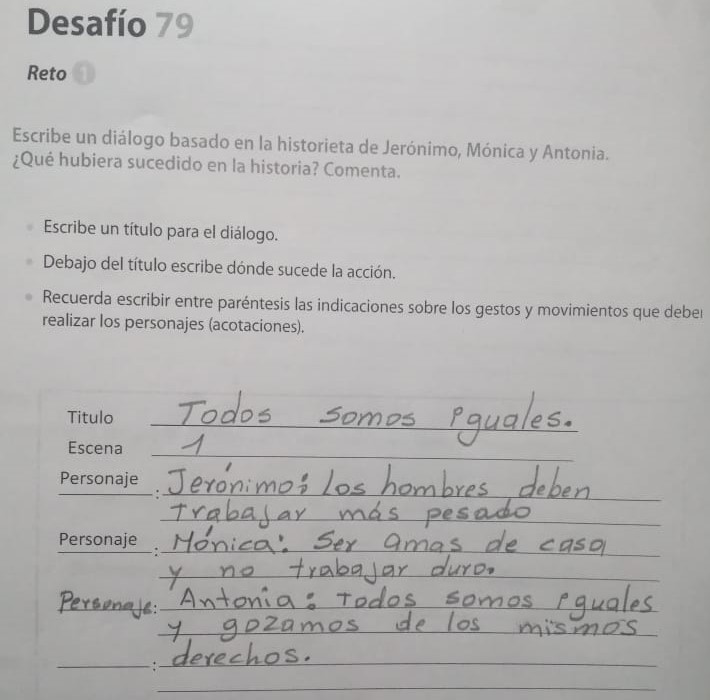 Desafío 79
Reto 1
Escribe un diálogo basado en la historieta de Jerónimo, Mónica y Antonia.
¿Qué hubiera sucedido en la historia? Comenta.
Escribe un título para el diálogo.
Debajo del título escribe dónde sucede la acción.
Recuerda escribir entre paréntesis las indicaciones sobre los gestos y movimientos que deber
realizar los personajes (acotaciones).
Titulo Todos somos Iguales.
Escena 1
Personaje : Jerónimo: los hombres deben
trabajar más pesado
Personaje : Mónica: Ser amas de casa
y no trabajar duro.
Personaje: Antonia: Todos somos iguales
y gozamos de los mismos
: derechos.